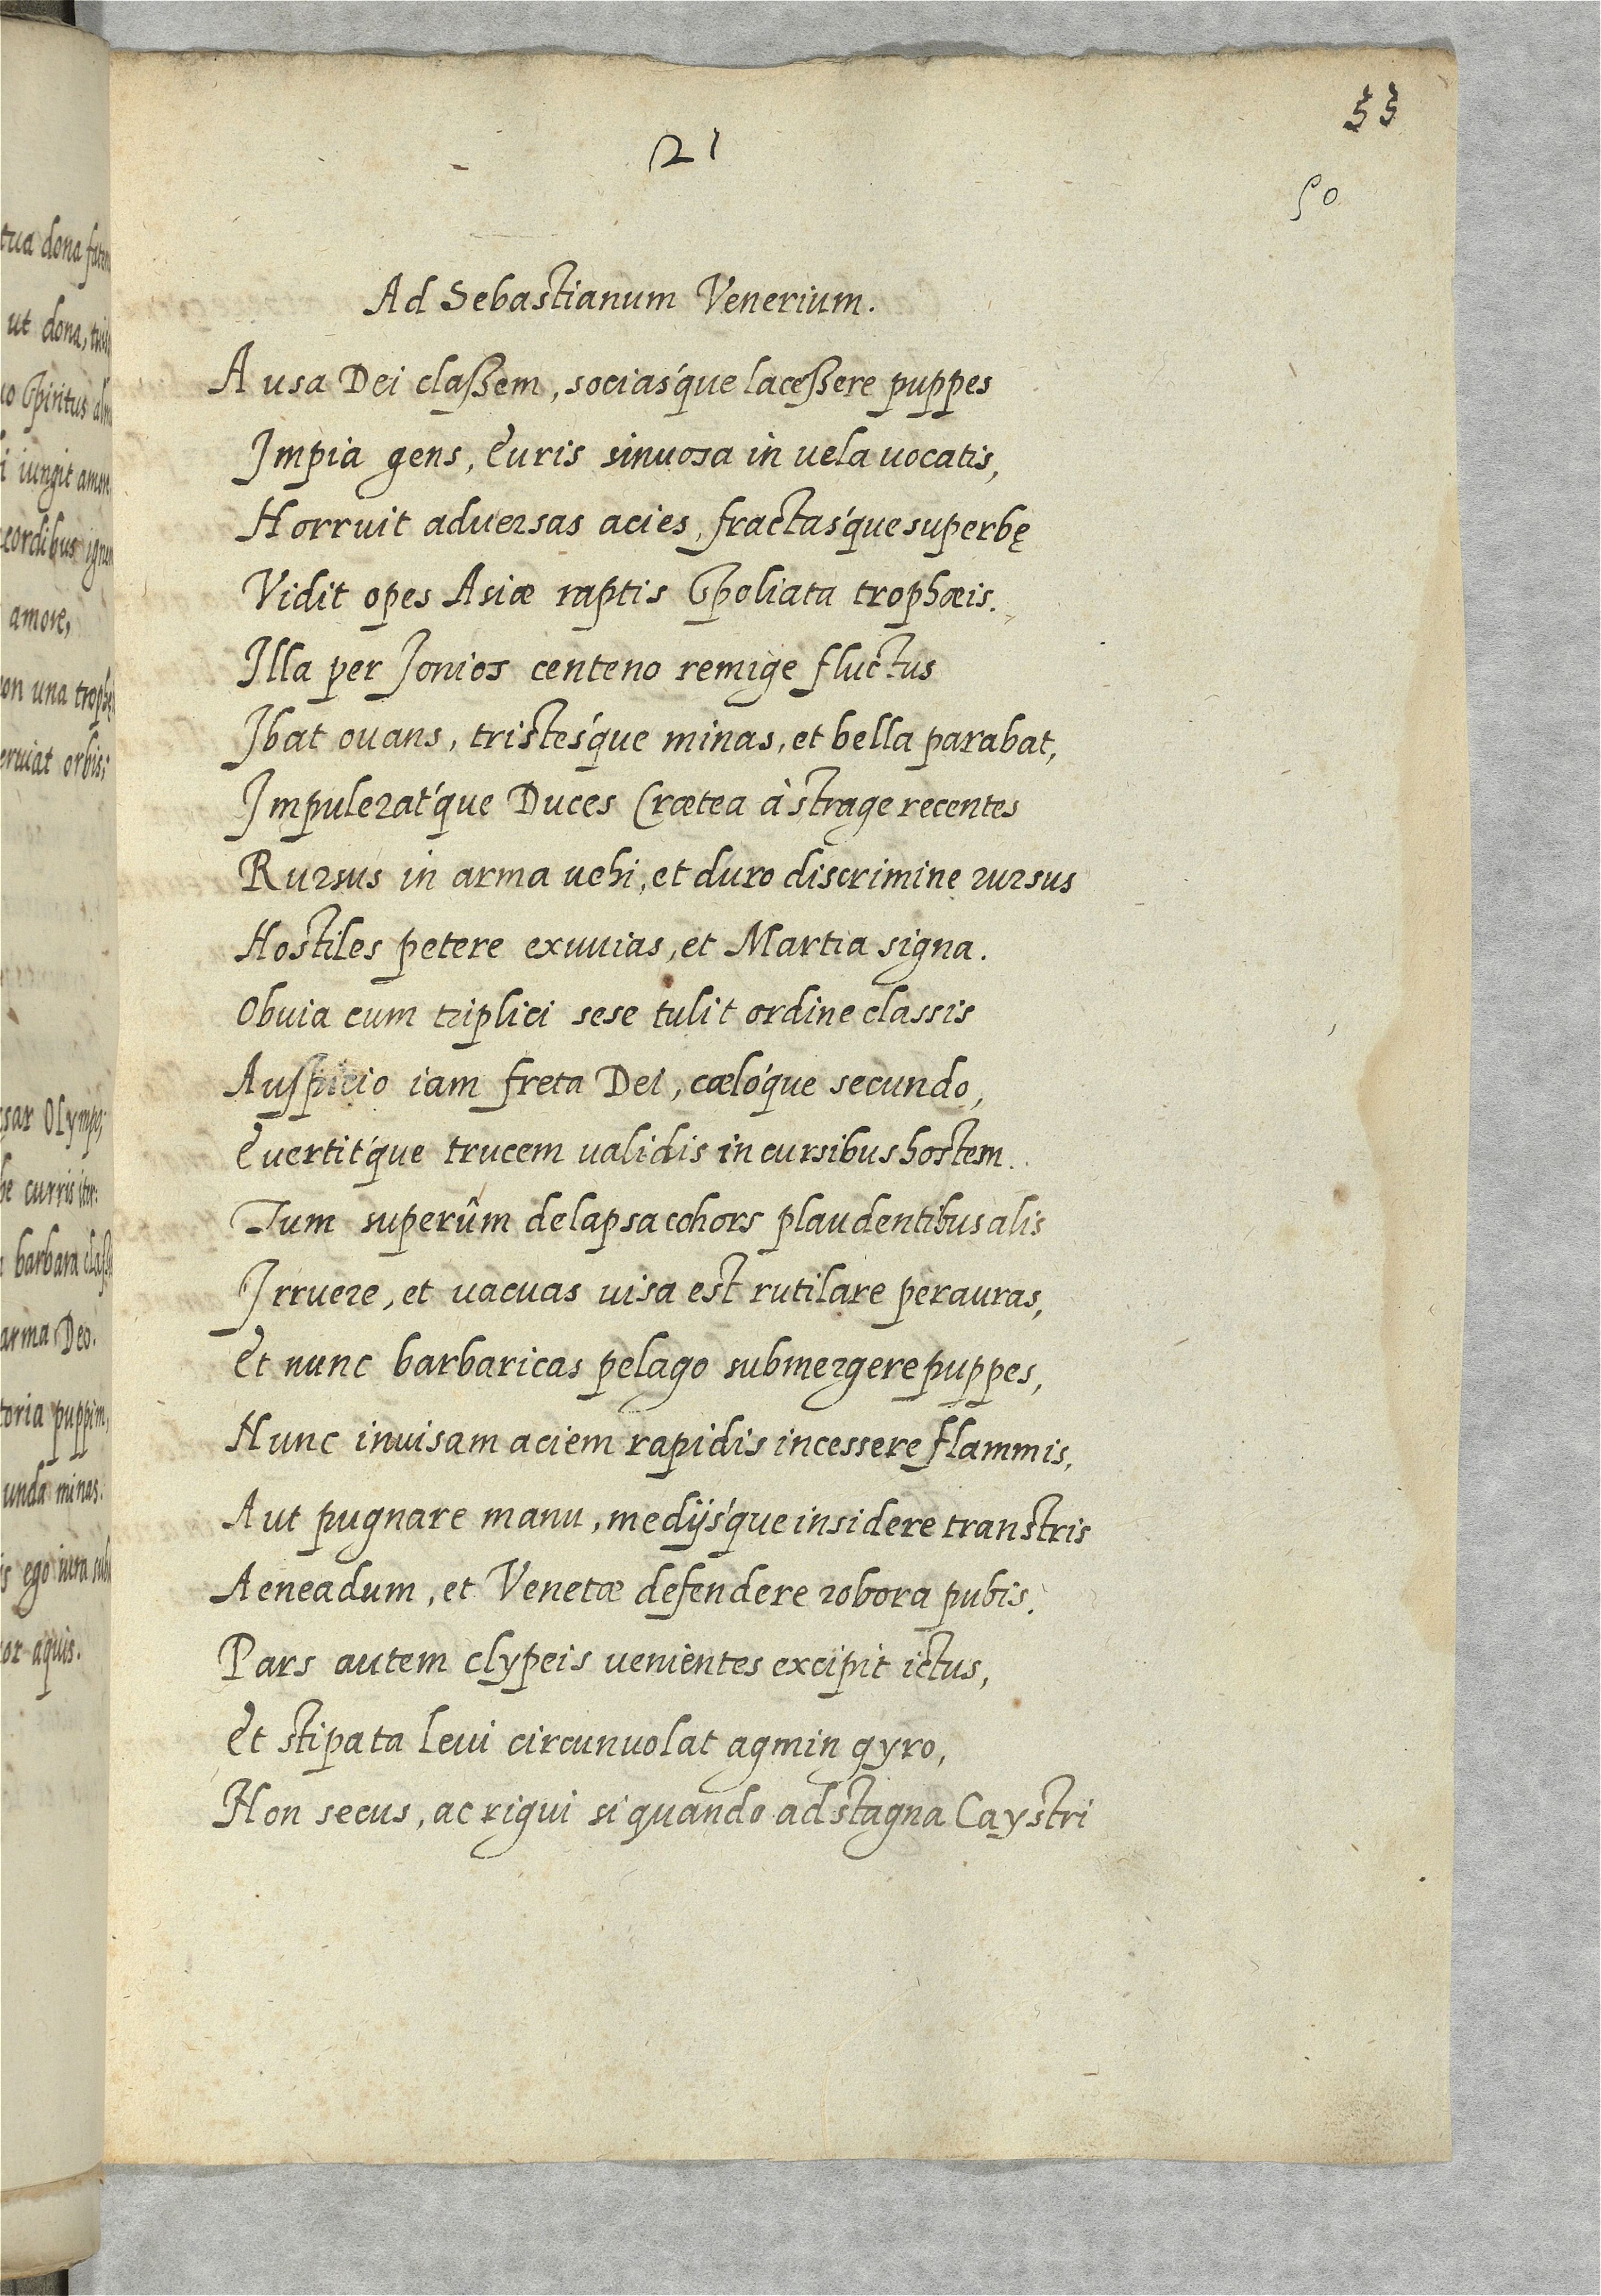 tua dona
ut dona,
Spiritus
iungit
cordibus
amore,
una
orbis;
barbara
arma Deo.
puppim,
unda minas.
ego iura
aquis.
33
21
50
Ad Sebastianum Venerium.
Ausa Dei claßem, socias'que laceßere puppes
Impia gens, Euris sinuosa in uela uocatis,
Horruit aduersas acies, fractas'que superbę
Vidit opes Asiæ raptis Spoliata trophæis.
Illa per Jonios centeno remige fluctus
Ibat ouans, tristes'que minas, et bella parabat,
Impulerat'que Duces Crætea à strage recentes
Rursus in arma uehi, et duro discrimine rursus
Hostiles petere exuuias, et Martia signa.
Obuia cum triplici sese tulit ordine classis
Auspicio iam freta Dei, cælo'que secundo,
Euertit'que trucem ualidis incursibus hostem.
Tum superûm delapsa cohors plaudentibus alis
Irruere, et uacuas uisa est rutilare per auras,
Et nunc barbaricas pelago submergere puppes,
Nunc inuisam aciem rapidis incessere flammis,
Aut pugnare manu, medijs'que insidere transtris
Aeneadum, et Venetæ defendere robora pubis.
Pars autem clypeis uenientes excipit ictus,
Et stipata leui circunuolat agmin gyro,
Non secus, ac rigui si quando ad stagna Caystri